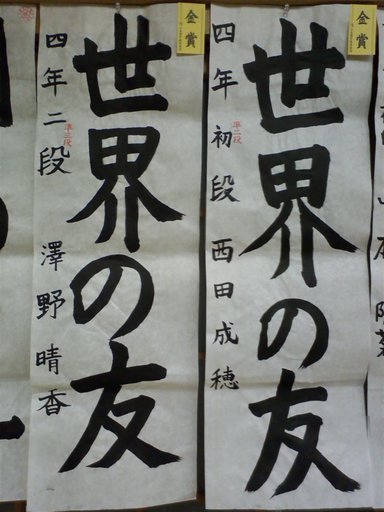 金賞
世界の友
四年初段 西田成穂
準二段
金賞
世界の友
四年二段 澤野晴香
準三段